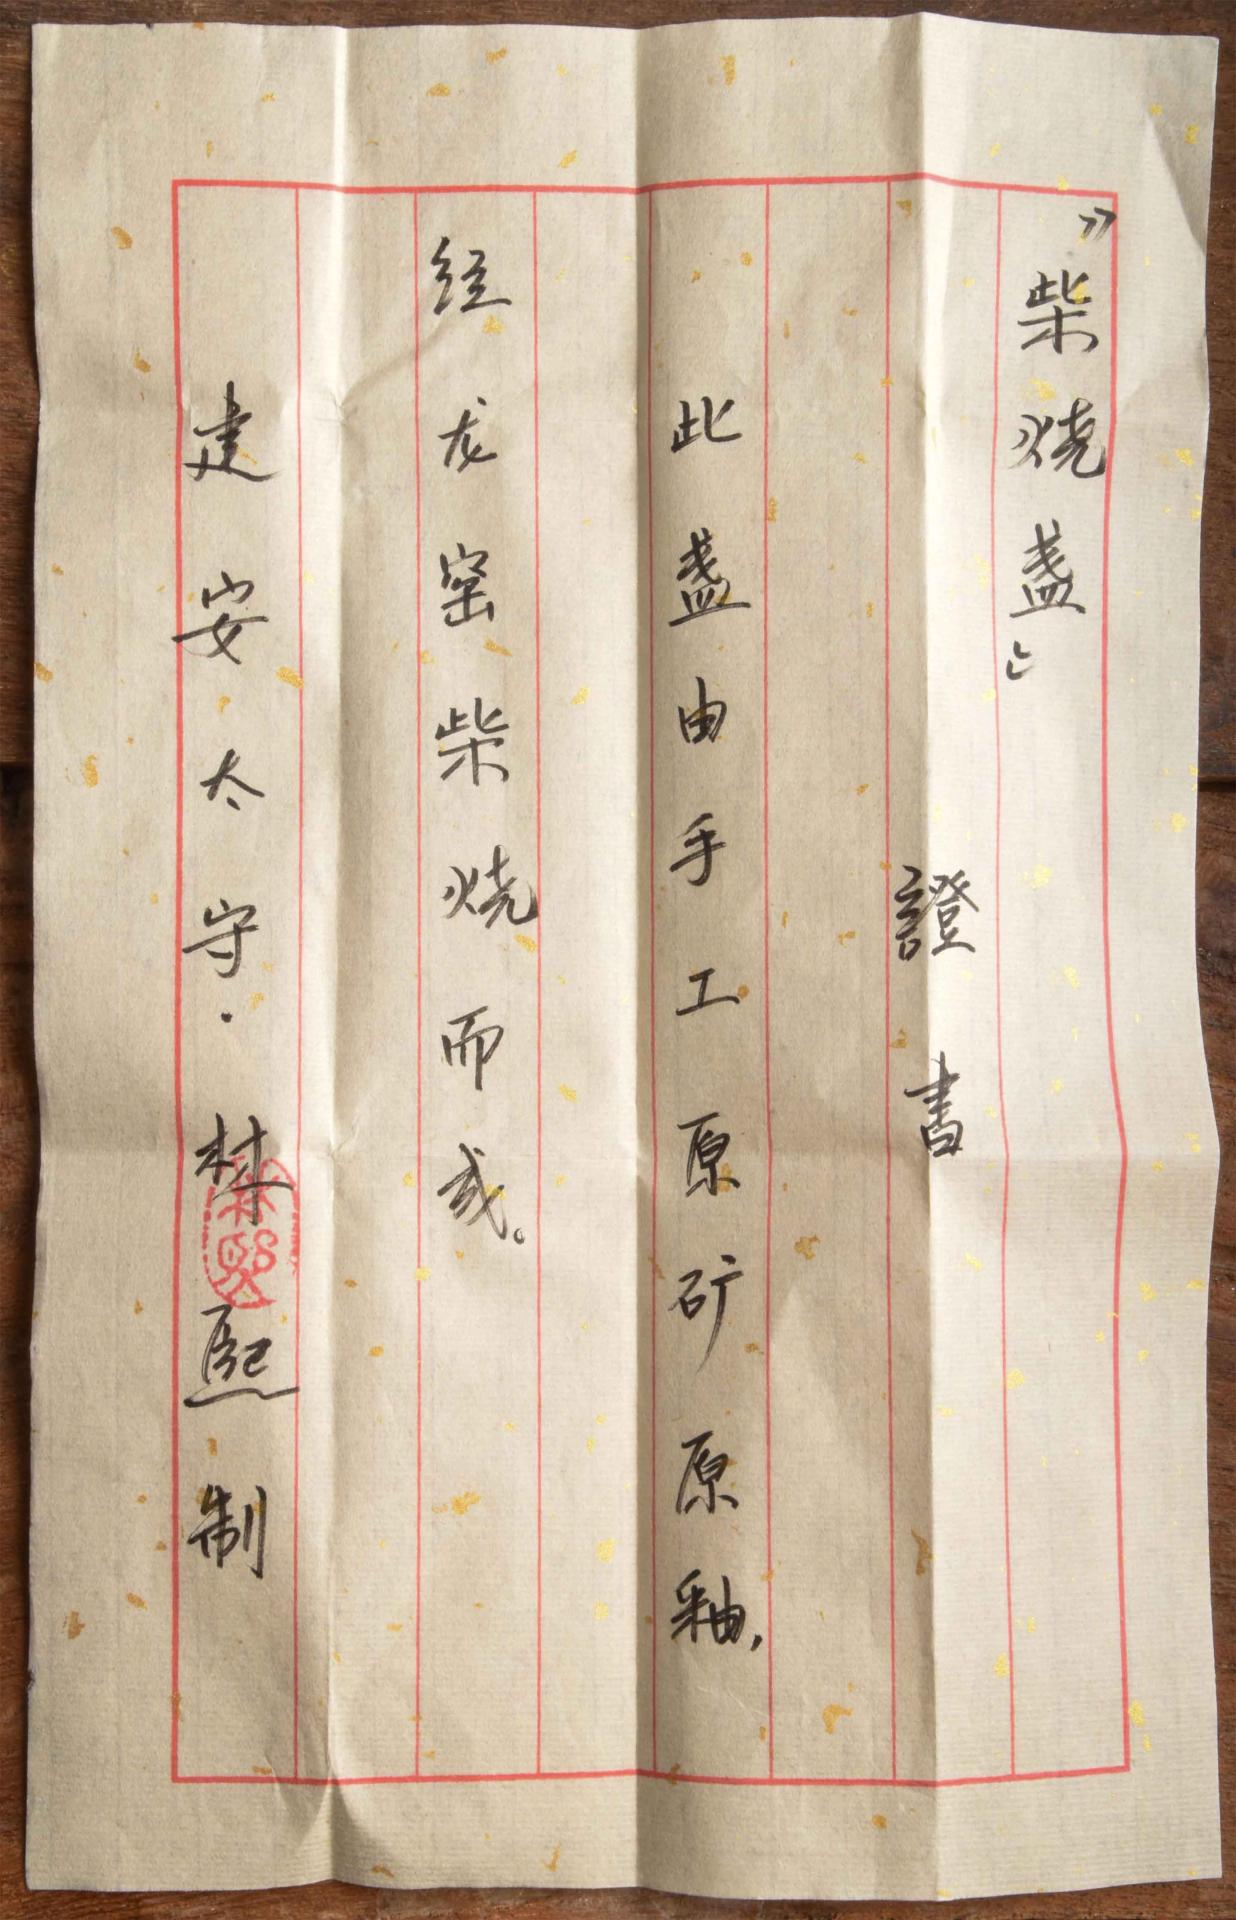 ”柴烧盏”
證書
此盏由手工原矿原釉,
经龙窑柴烧而成。
建安太守·林熙制
林熙